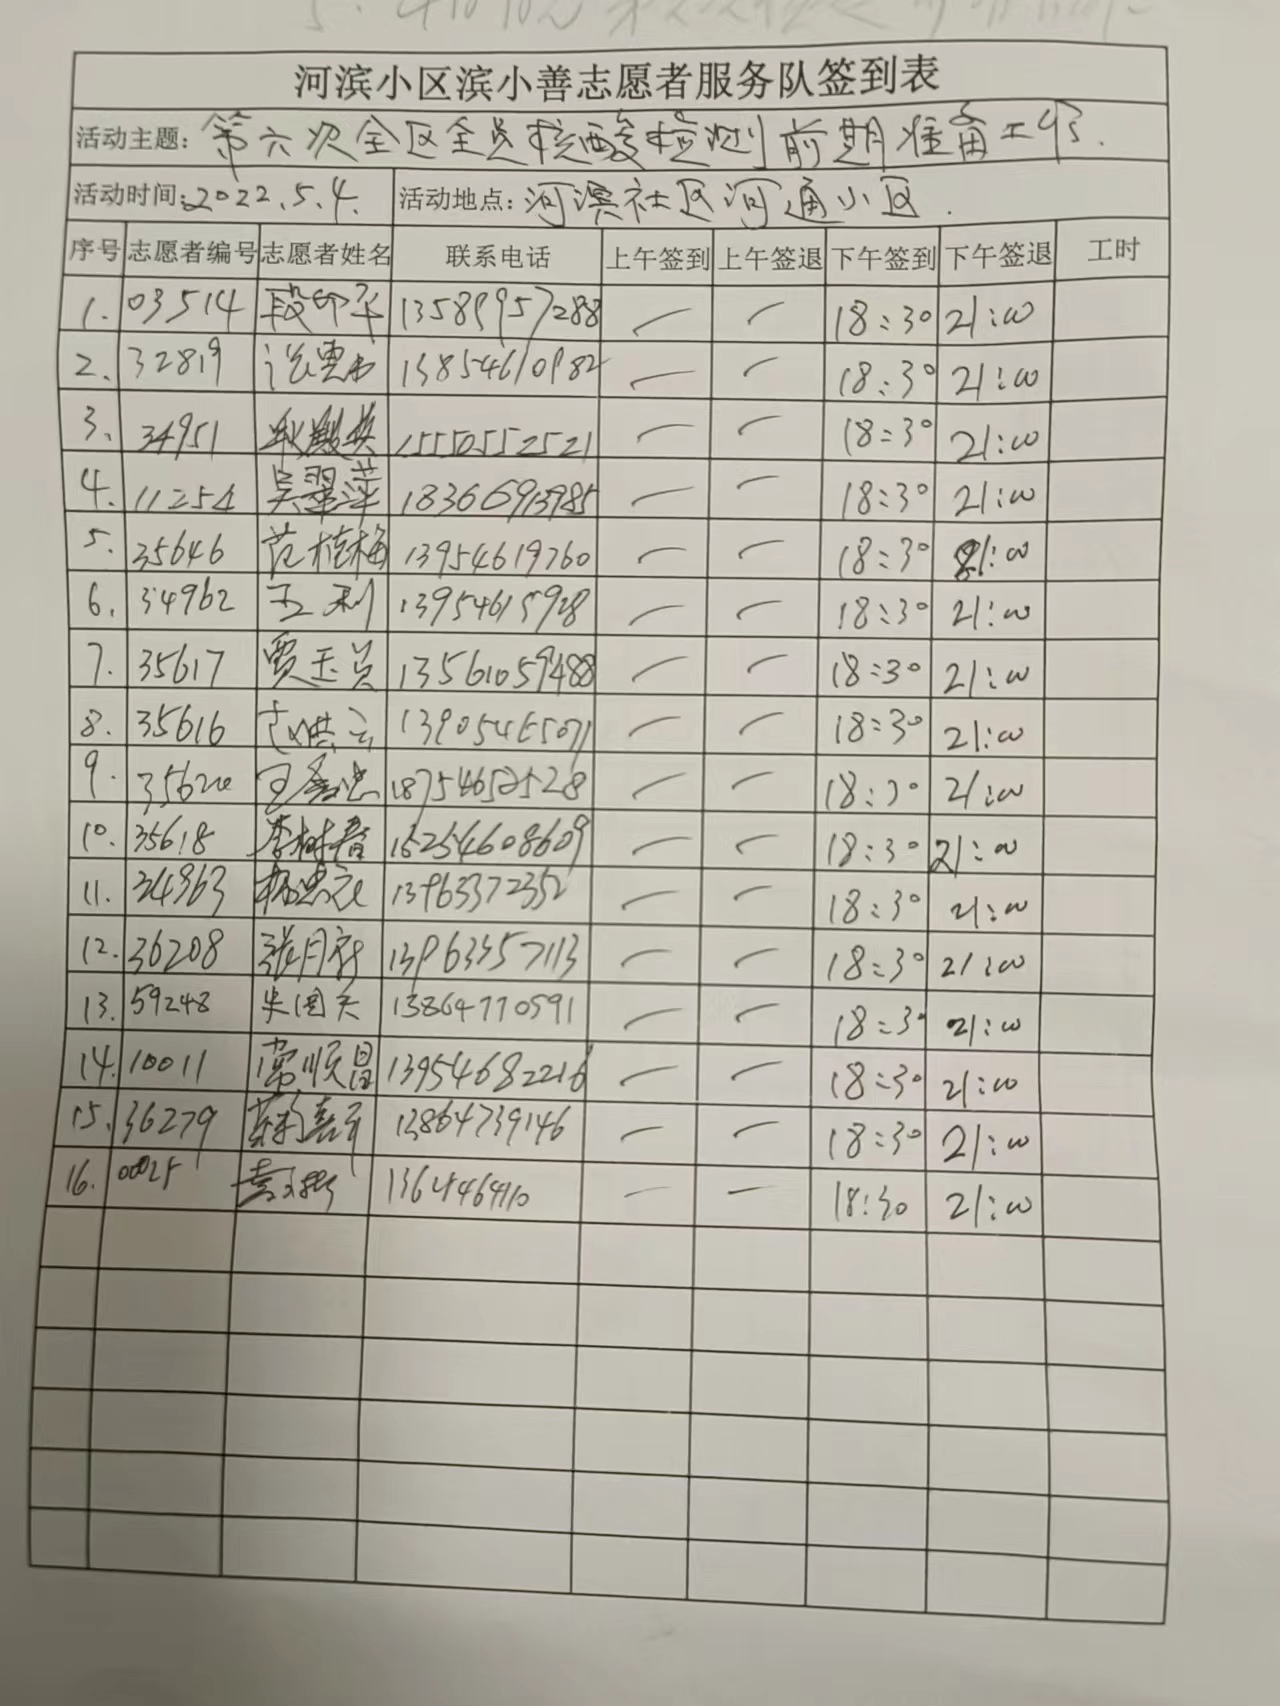 河滨小区滨小善志愿者服务队签到表
活动主题: 第六次全区全员核酸检测前期准备工作.
活动时间: 2022.5.4. 活动地点: 河滨社区河通小区.
序号 志愿者编号 志愿者姓名 联系电话 上午签到 上午签退 下午签到 下午签退 工时
1. 03514 13589957288 — — 18:30 21:00
2. 32819 13854610982 — — 18:30 21:00
3. 34951 15550552521 — — 18:30 21:00
4. 11254 吴翠萍 18366913985 — — 18:30 21:00
5. 35646 范桂梅 13954619760 — — 18:30 21:00
6. 34962 王利 13954615928 — — 18:30 21:00
7. 35617 贾玉兰 13561059488 — — 18:30 21:00
8. 35616 13905465071 — — 18:30 21:00
9. 35620 18754652528 — — 18:30 21:00
10. 35618 李树春 15254608609 — — 18:30 21:00
11. 34963 13963372352 — — 18:30 21:00
12. 36208 13963357113 — — 18:30 21:00
13. 59248 13864770591 — — 18:30 21:00
14. 10011 常顺昌 13954682216 — — 18:30 21:00
15. 36279 13864739146 — — 18:30 21:00
16. — — 18:30 21:00